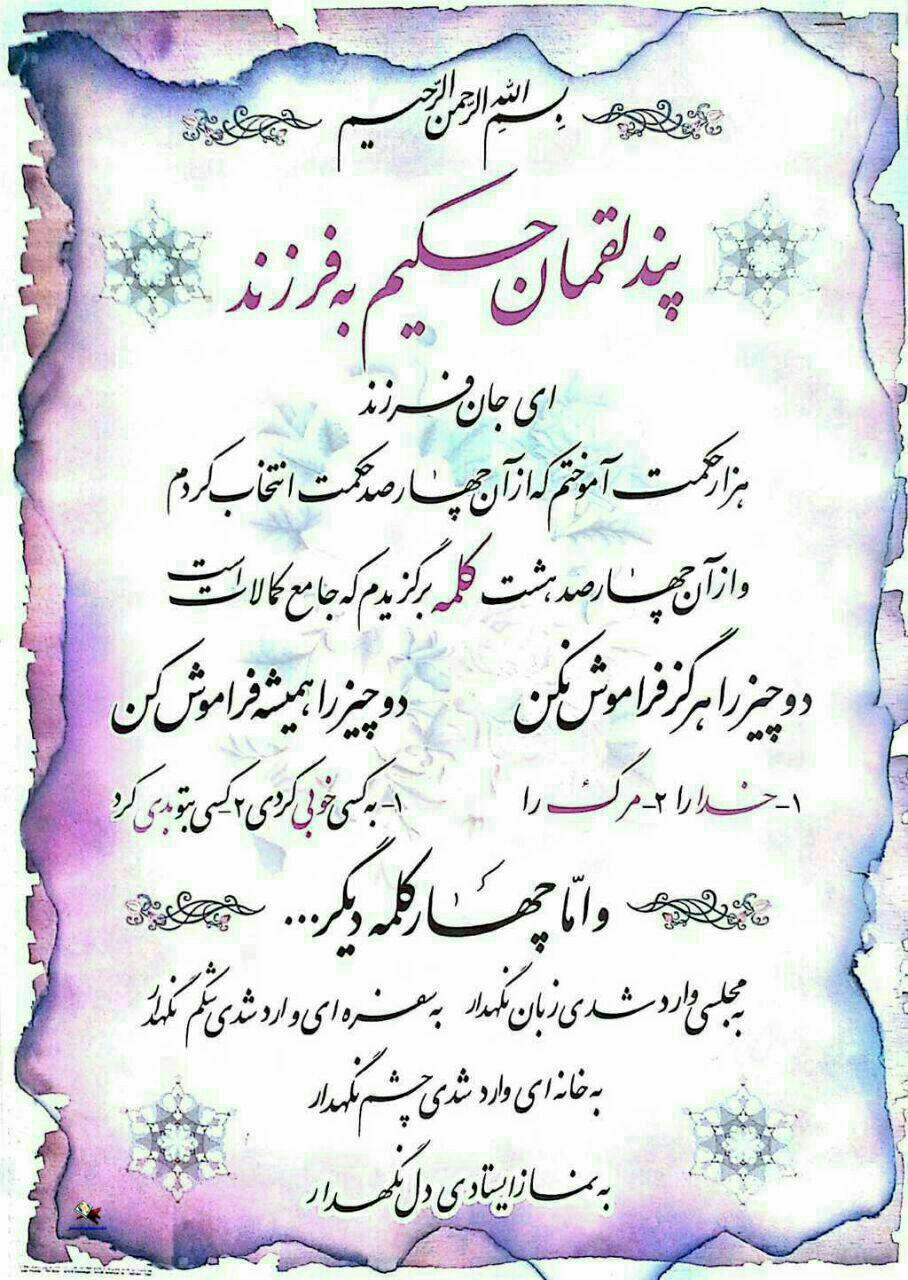 بِسمِ اللهِ الرَّحمنِ الرَّحیم
پند لقمان حکیم به فرزند
ای جان فرزند
هزار حکمت آموختم که از آن چهارصد حکمت انتخاب کردم
و از آن چهارصد هشت کلمه برگزیدم که جامع کمالات است
دو چیز را هرگز فراموش نکن
۱- خدا را ۲- مرگ را
دو چیز را همیشه فراموش کن
۱- به کسی خوبی کردی ۲- کسی بتو بدی کرد
و امّا چهار کلمه دیگر...
به مجلسی وارد شدی زبان نگهدار به سفره ای وارد شدی شکم نگهدار
به خانه ای وارد شدی چشم نگهدار
به نماز ایستادی دل نگهدار